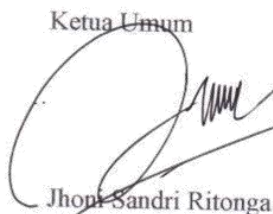 Ketua Umum
Jhoni Sandri Ritonga